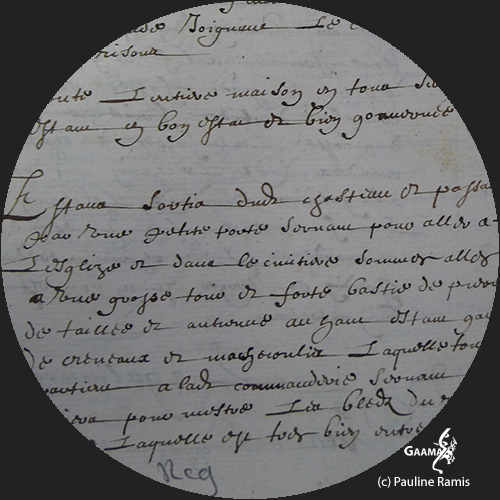 Joignant Le
prisons
toute Lentiere maison en tout
estant en bon estat et bien gouvernée
Estans sortis dudt chasteau et passa
par une petite porte servant pour aller a
Lesglize et dans le cimitiere sommes allés
a une grosse tour et forte bastie de pierre
de tailles et antienne au haut estant ga
de creneaux et machecoulis Laquelle tour
apartient a ladt commanderie servant
pour mestre Les bledz du
Laquelle est tres bien entre
Reg
GAAMA
(c) Pauline Ramis